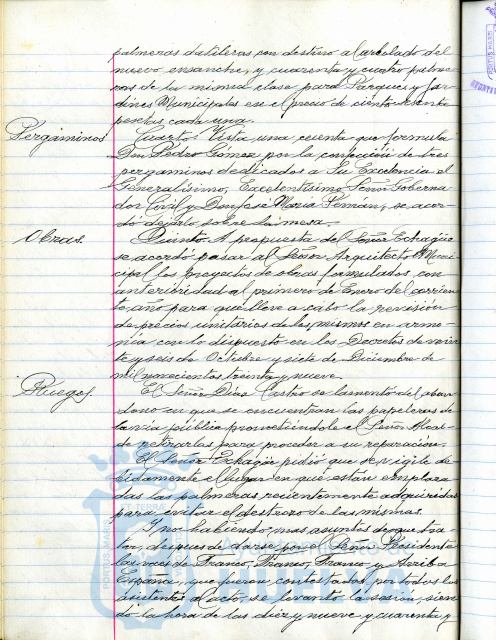 palmeras datileras con destino al arbolado del
nuevo ensanche, y cuarenta y cuatro palme-
ras de la misma clase para Parques y Jar-
dines Municipales en el precio de ciento
pesetas cada una.
Pergaminos
Cuarto. Vista una cuenta que formula
Don Pedro Gómez por la confección de tres
pergaminos dedicados a Su Excelencia el
Generalísimo, Excelentísimo Señor Goberna-
dor Civil y Don José María Pemán, se acor-
dó dejarlo sobre la mesa.
Obras.
Quinto. A propuesta del Señor Echagüe
se acordó pasar al Señor Arquitecto Muni-
cipal los proyectos de obras formulados con
anterioridad al primero de Enero del corrien-
te año para que lleve a cabo la revisión
de precios unitarios de los mismos en armo-
nía con lo dispuesto en los Decretos de vein-
te y seis de Octubre y siete de Diciembre de
mil novecientos treinta y nueve.
Ruegos
El Señor Díaz Castro se lamentó del aban-
dono en que se encuentran las papeleras de
la vía pública prometiéndole el Señor Alcal-
de retirarlas para proceder a su reparación.
El Señor Echagüe pidió que se vigile de-
bidamente el lugar en que están emplaza-
das las palmeras recientemente adquiridas
para evitar el destrozo de las mismas.
Y no habiendo mas asuntos de que tra-
tar, despues de darse por el Señor Presidente
las voces de Franco, Franco, Franco y Arriba
España, que fueron contestados por todos los
asistentes al acto, se levantó la sesión, sien-
do la hora de las diez y nueve y cuarenta y